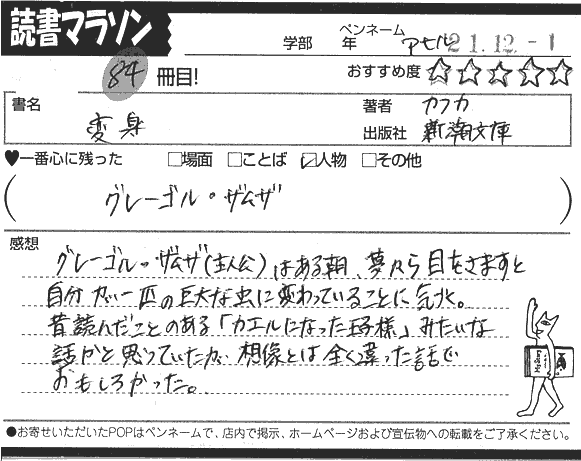 読書マラソン
学部 年 ペンネーム アセル 21.12.-1
84 冊目!
おすすめ度 ☆☆☆☆☆
書名 変身
著者 カフカ
出版社 新潮文庫
♥一番心に残った □場面 □ことば ☑人物 □その他
(グレーゴル・ザムザ)
感想
グレーゴル・ザムザ(主人公)はある朝、夢から目をさますと
自分が一匹の巨大な虫に変わっていることに気付く。
昔読んだことのある「カエルになった王子様」みたいな
話かと思っていたが、想像とは全く違った話で
おもしろかった。
●お寄せいただいたPOPはペンネームで、店内で掲示、ホームページおよび宣伝物への転載をご了承ください。